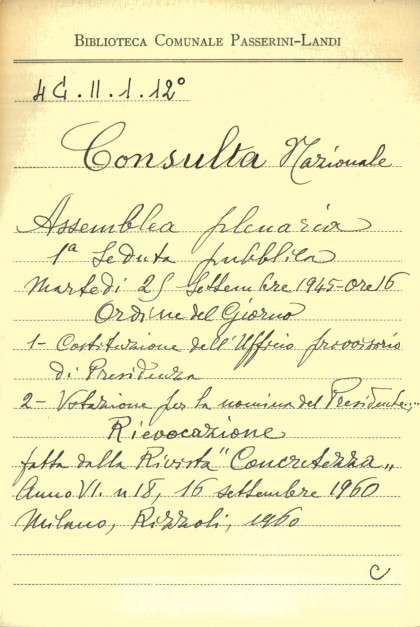 BIBLIOTECA COMUNALE PASSERINI-LANDI
4G.II.1.12°
Consulta Nazionale
Assemblea plenaria
1ª Seduta pubblica
Martedì 25 Settembre 1945-ore 16
Ordine del Giorno
1- Costituzione dell'Ufficio provvisorio
di Presidenza
2- Votazione per la nomina del Presidente;"
Rievocazione
fatta dalla Rivista "Concretezza"
Anno VI. n 18, 16 settembre 1960
Milano, Rizzoli, 1960
C